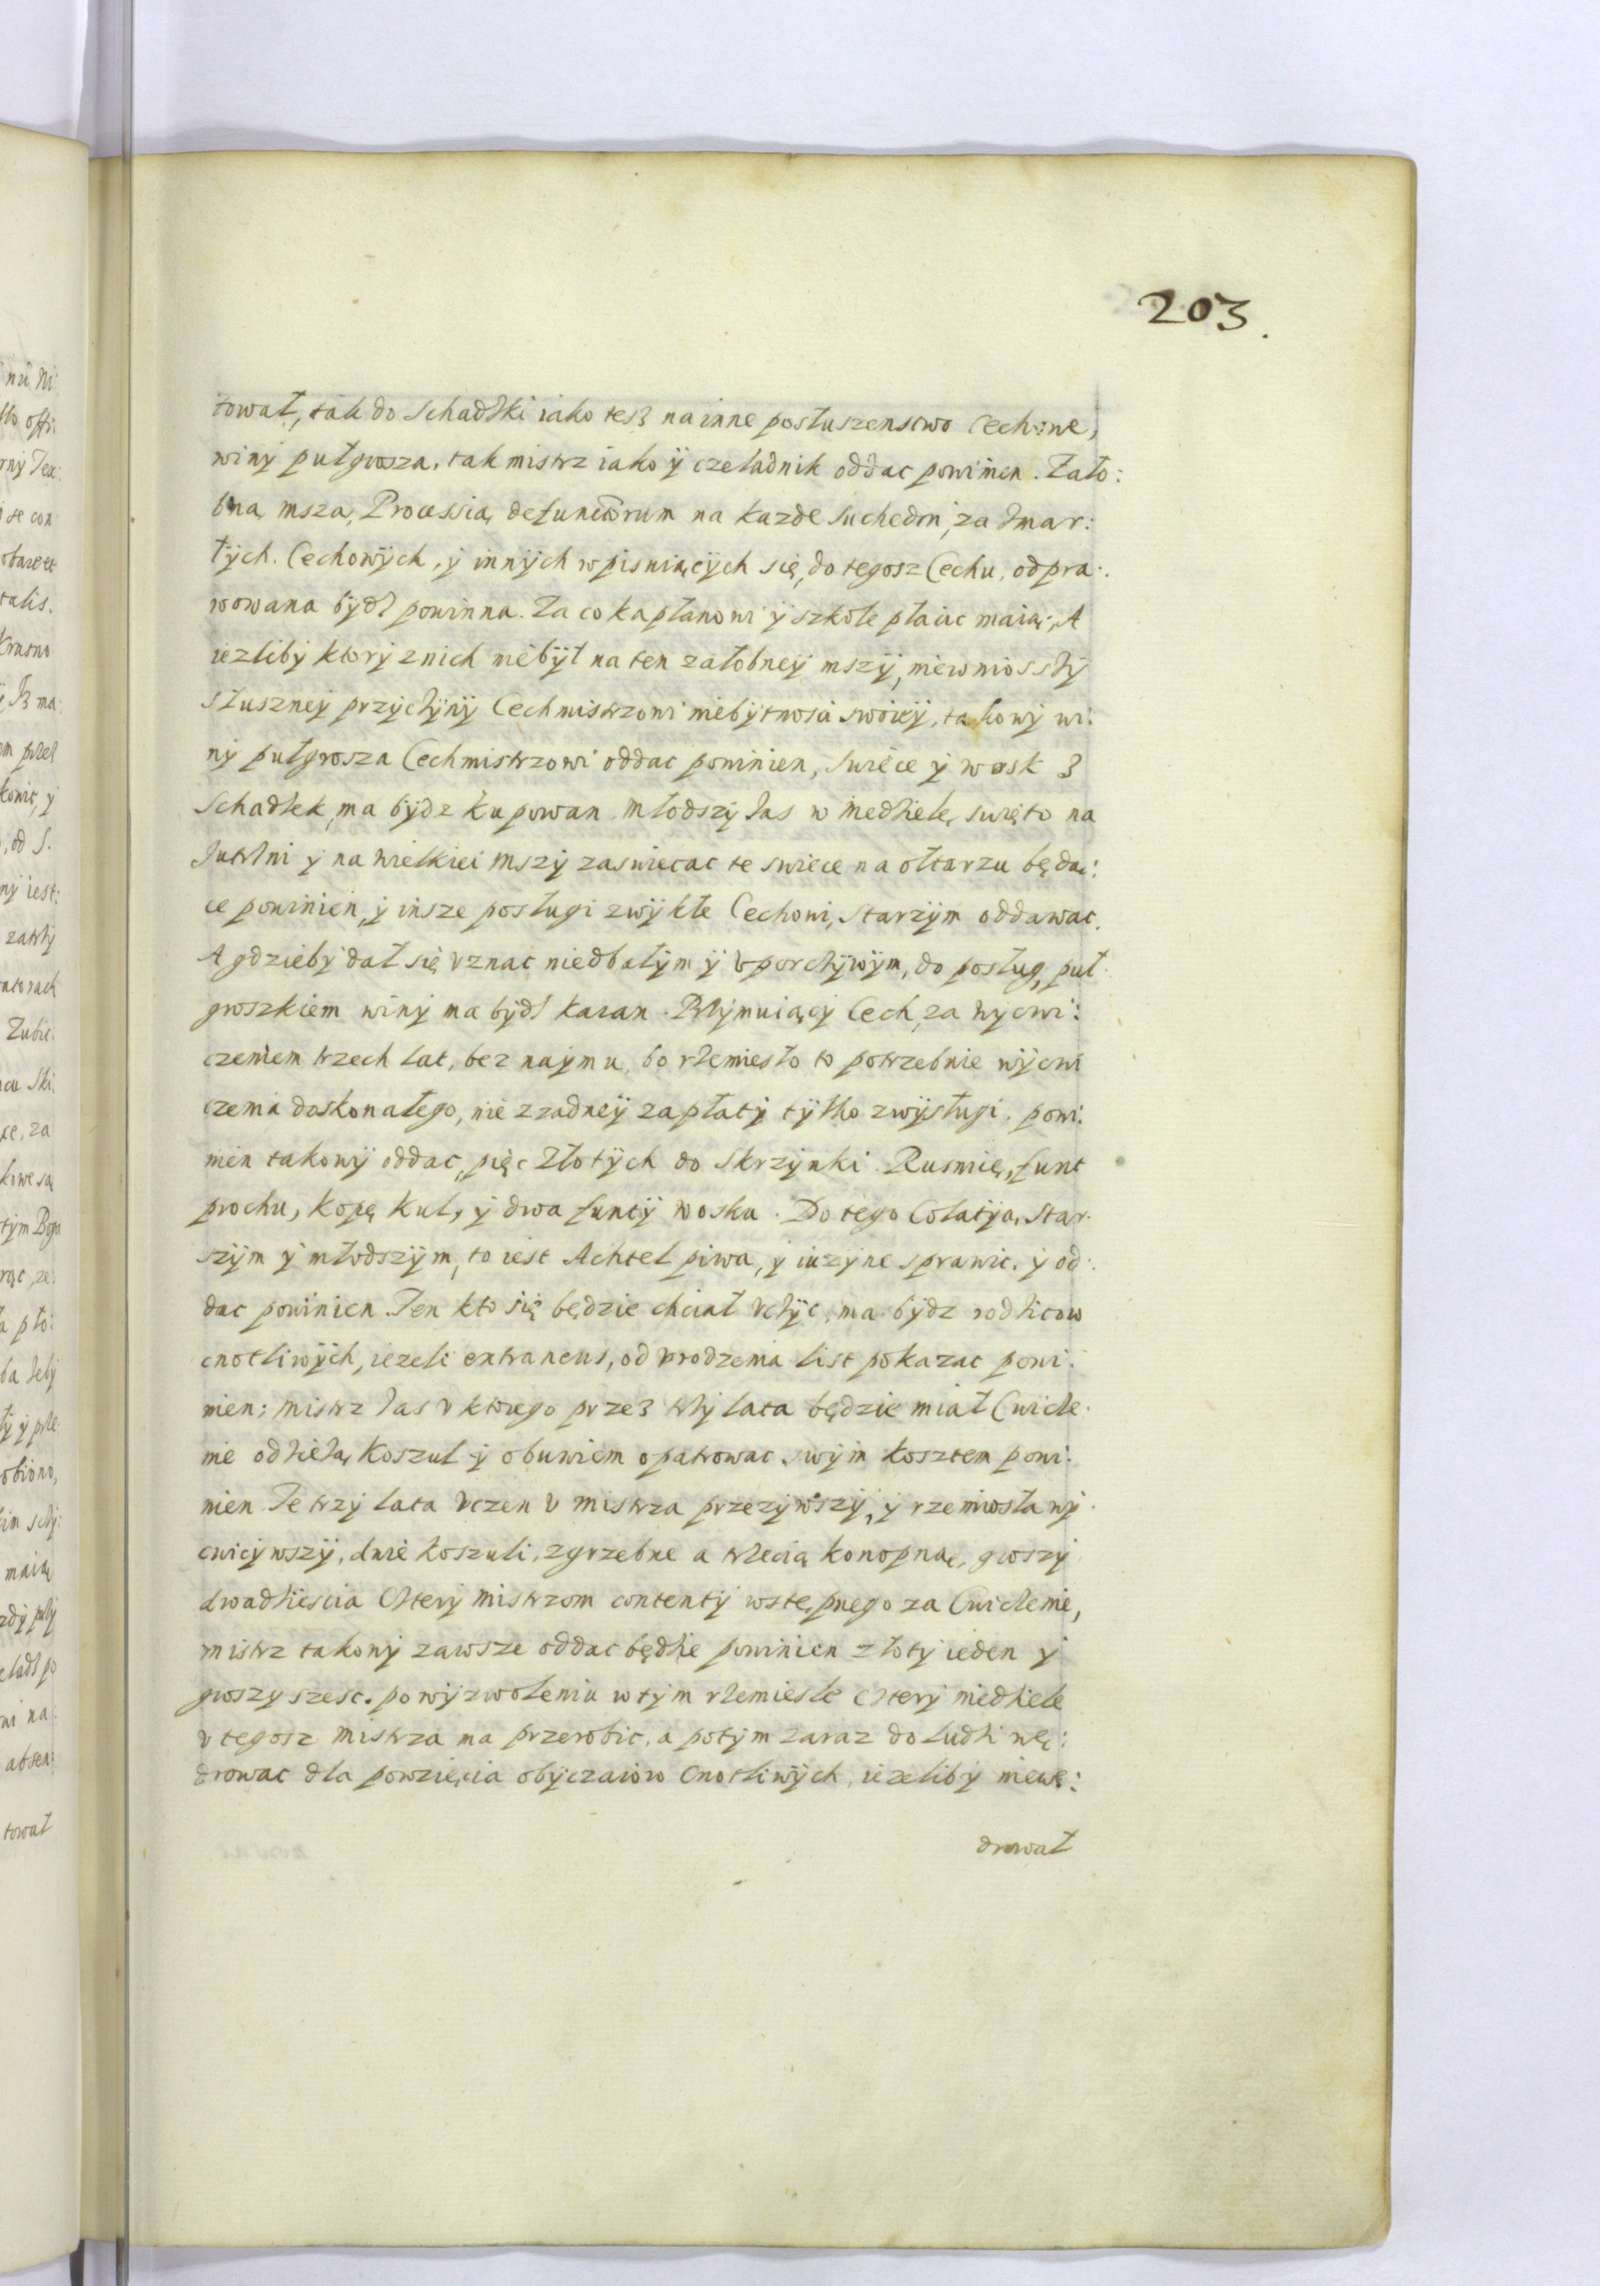 203.
tował, tak do Schadzki iako tesz na inne posłuszenstwo Cechowe,
winy pułgrosza, tak mistrz iako ÿ czeladnik oddac powinien. Zało:
bna, msza, Processia, defunctorum na kazde Suchedni, za Zmar:
łÿch. Cechowÿch, ÿ innÿch wpisuiącÿch się, do tegosz Cechu, odpra:
wowana bÿdz powinna. Za co kapłanowi ÿ szkole płacic maią, A
iezliby ktorÿ z nich niebÿł na ten załobneÿ mszÿ, niewniosszÿ
słuszneÿ przÿczÿnÿ Cechmistrzowi niebÿtnosci swoieÿ, takowÿ wi:
nÿ pułgrosza Cechmistrzowi oddac powinien, swiece ÿ wosk z
Schadzek, ma bÿdz kupowan. młodszÿ zas w niedziele, swięto na
Jutrzni ÿ na wielkiei mszÿ zaswiecac te swiece na ołtarzu będą:
ce powinien, ÿ insze posługi zwÿkłe Cechowi, starszÿm oddawac.
A gdziebÿ dał się vznac niedbałÿm ÿ vporczÿwÿm, do posług, puł
groszkiem winÿ ma bÿdz karan. Przÿmuiącÿ Cech, za wÿcwi:
czeniem trzech lat, bez naÿmu, bo rzemiesło to potrzebuie wÿcwi
czenia doskonałego, nie z zadneÿ zapłatÿ tÿlko z wÿsługi, powi:
nien takowÿ oddac, pięc Złotÿch do Skrzÿnki. Rusnię, funt
prochu, kopę kul, ÿ dwa funtÿ wosku. Do tego Colatÿa, star:
szÿm ÿ młodszÿm, to iest Achtel piwa, ÿ iuzÿne sprawic, ÿ od:
dac powinien. Ten kto się będzie chciał vczÿc, ma bÿdz rodzicow
cnotliwÿch, iezeli extraneus, od vrodzenia list pokazac powi:
nien; mistrz zas v ktorego przez trzÿ lata będzie miał Cwicze:
nie odzieżą, koszul ÿ obuwiem opatrowac swÿm kosztem powi:
nien. Te trzÿ lata vczen v mistrza przezÿwszÿ, ÿ rzemiosła wÿ:
cwicÿwszÿ, dwie koszuli, zgrzebne a trzecią konopną, groszÿ
dwadziescia Czterÿ mistrzom contentÿ wstępnego za Cwiczenie,
mistrz takowÿ zawsze oddac będzie powinien złotÿ ieden ÿ
groszÿ szesc. po wÿzwoleniu w tÿm rzemiesle czterÿ niedziele
v tegosz mistrza ma przerobic, a potÿm zaraz do ludzi wę:
drowac dla powzięcia obÿczaiow cnotliwÿch, iezelibÿ niewę:
drował